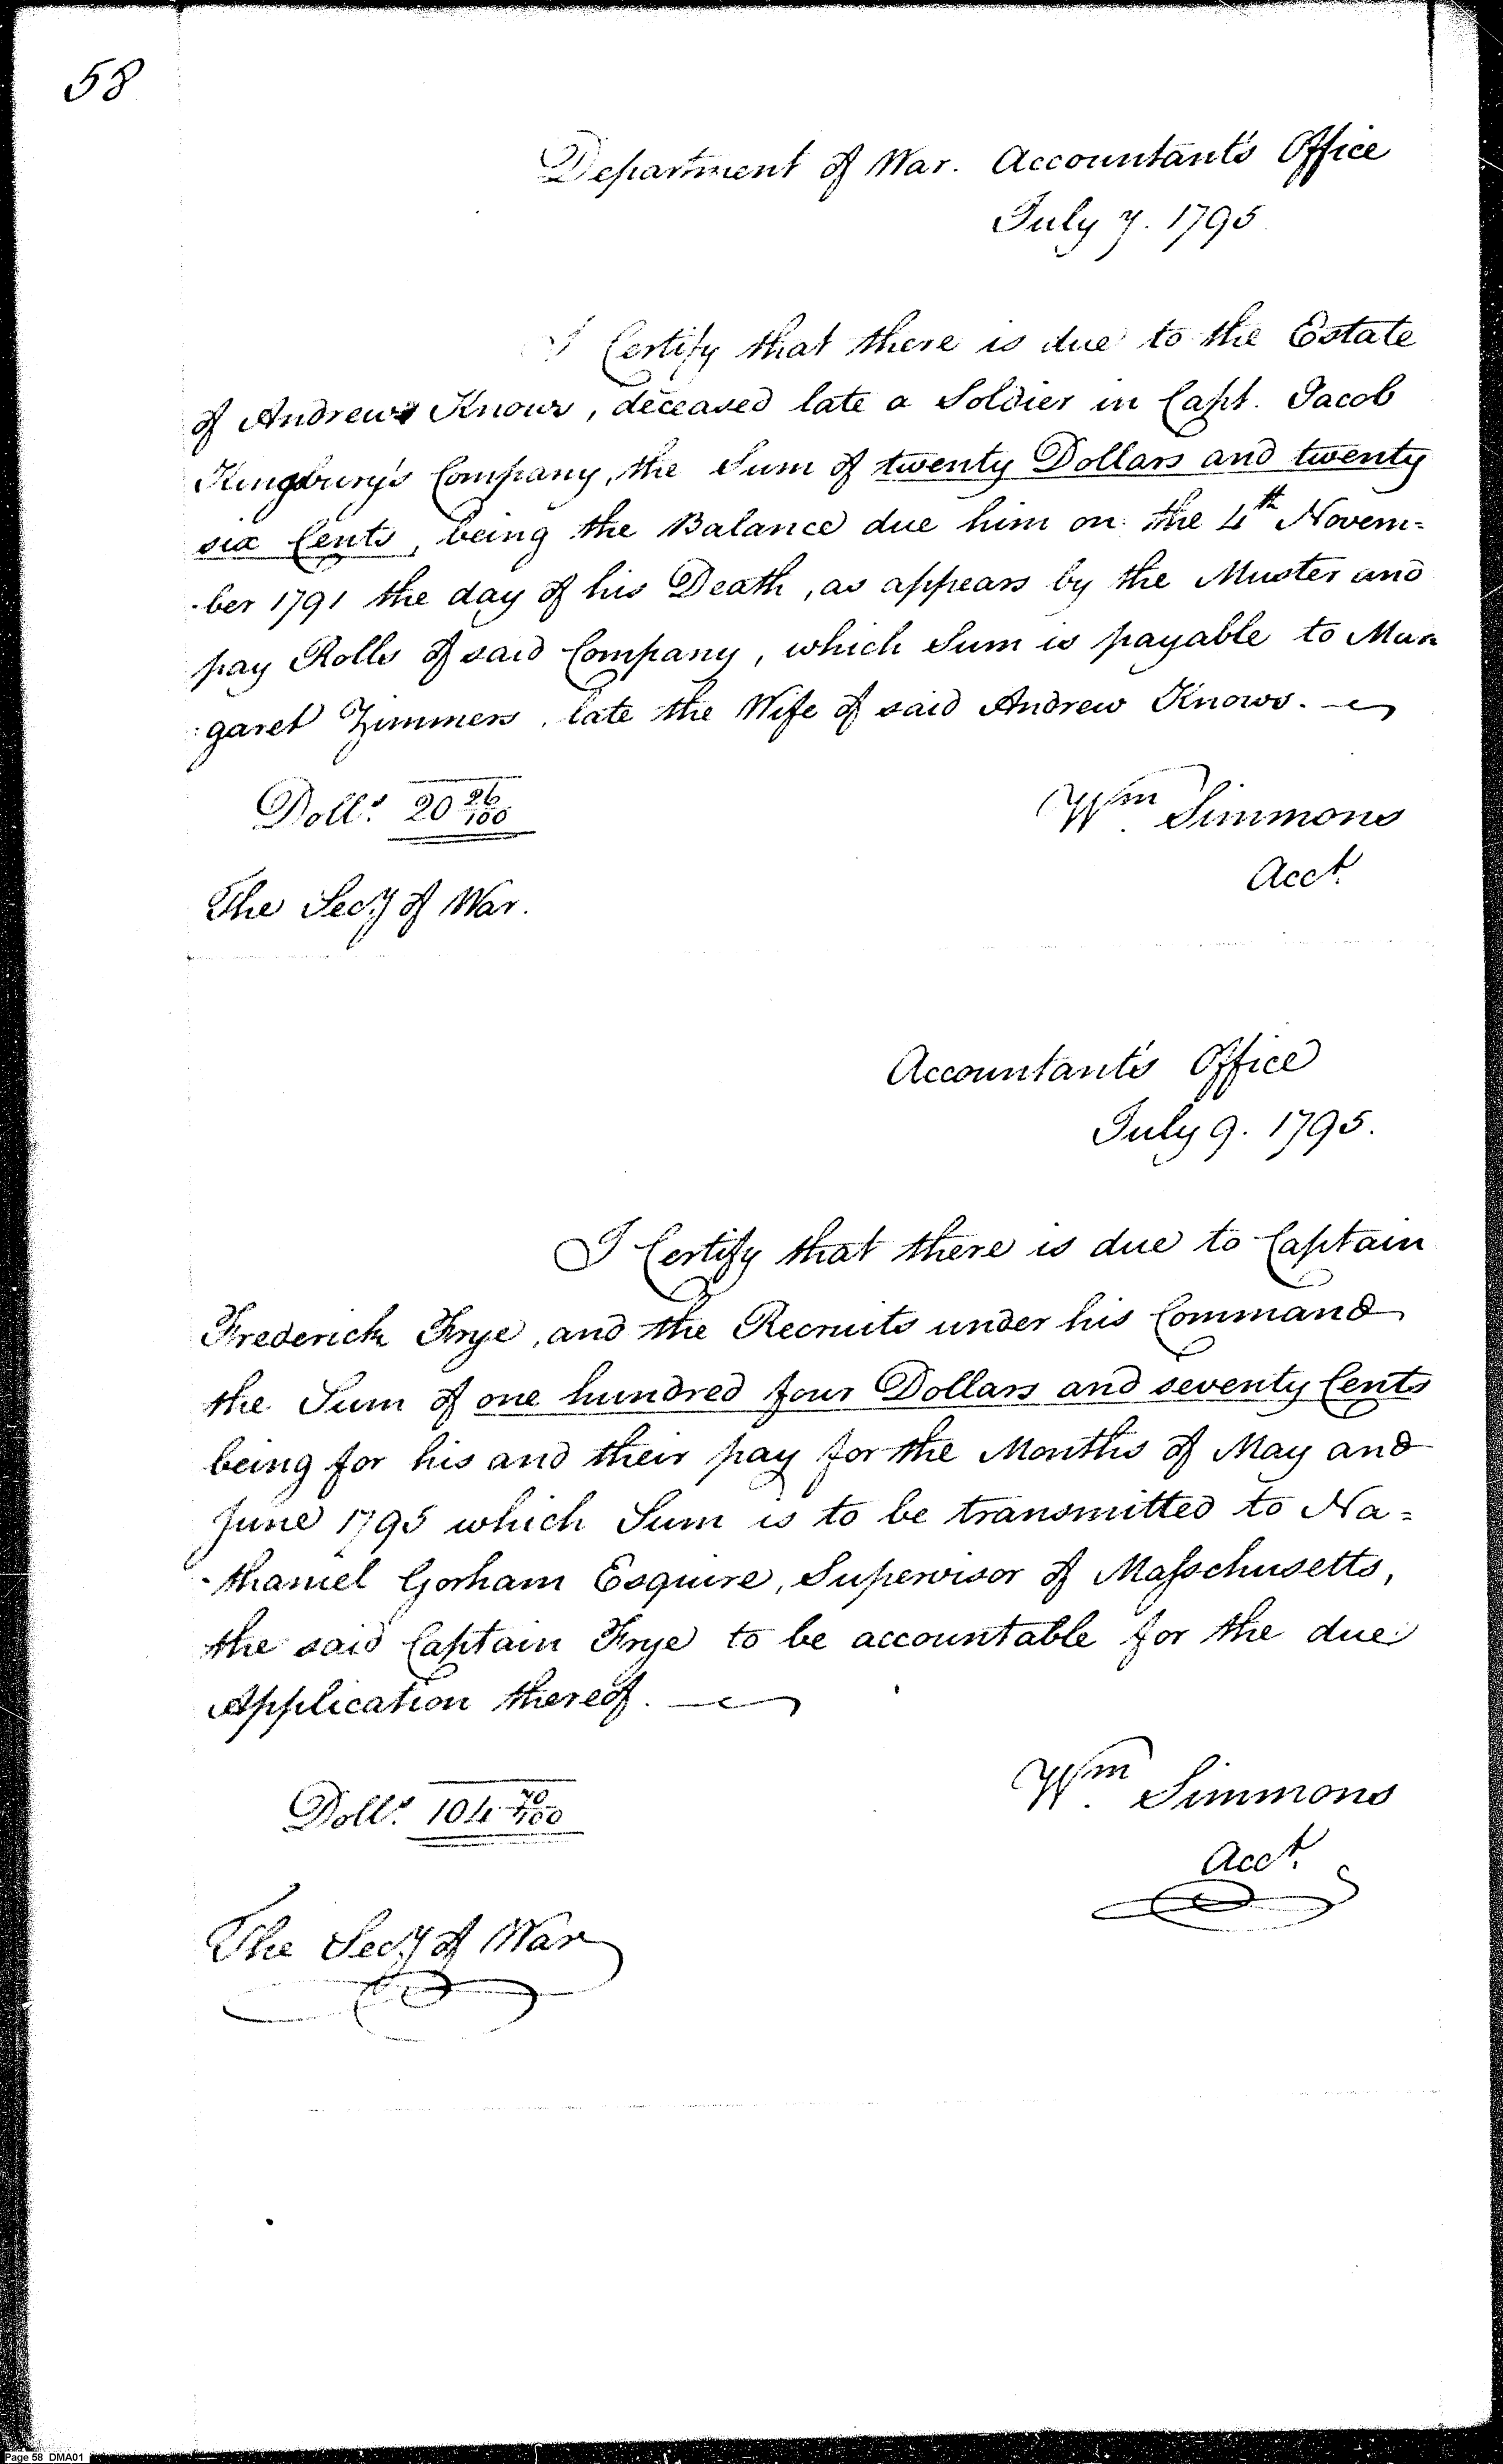 58
Department of War. Accountant's Office
July 7. 1795
I Certify that there is due to the Estate
of Andrew Knows, deceased late a Soldier in Capt. Jacob
Kingsbury's Company, the Sum of twenty Dollars and twenty
six Cents, being the Balance due him on the 4th Novem=
-ber 1791 the day of his Death, as appears by the Muster and
pay Rolls of said Company, which Sum is payable to Mar
:garet Zimmers, late the Wife of said Andrew Knows.
Dolls. 20 26/100
Wm Simmons
Acct.
The Secy of War.
Accountant's Office
July 9. 1795.
I Certify that there is due to Captain
Frederick Frye, and the Recruits under his Command
the Sum of one hundred four Dollars and seventy Cents
being for his and their pay for the Months of May and
June 1795 which Sum is to be transmitted to Na=
-thaniel Gorham Esquire, Supervisor of Masschusetts,
the said Captain Frye to be accountable for the due
Application thereof.
Dolls. 104 70/100
Wm Simmons
Acct.
The Secy of War
Page 58 DMA01